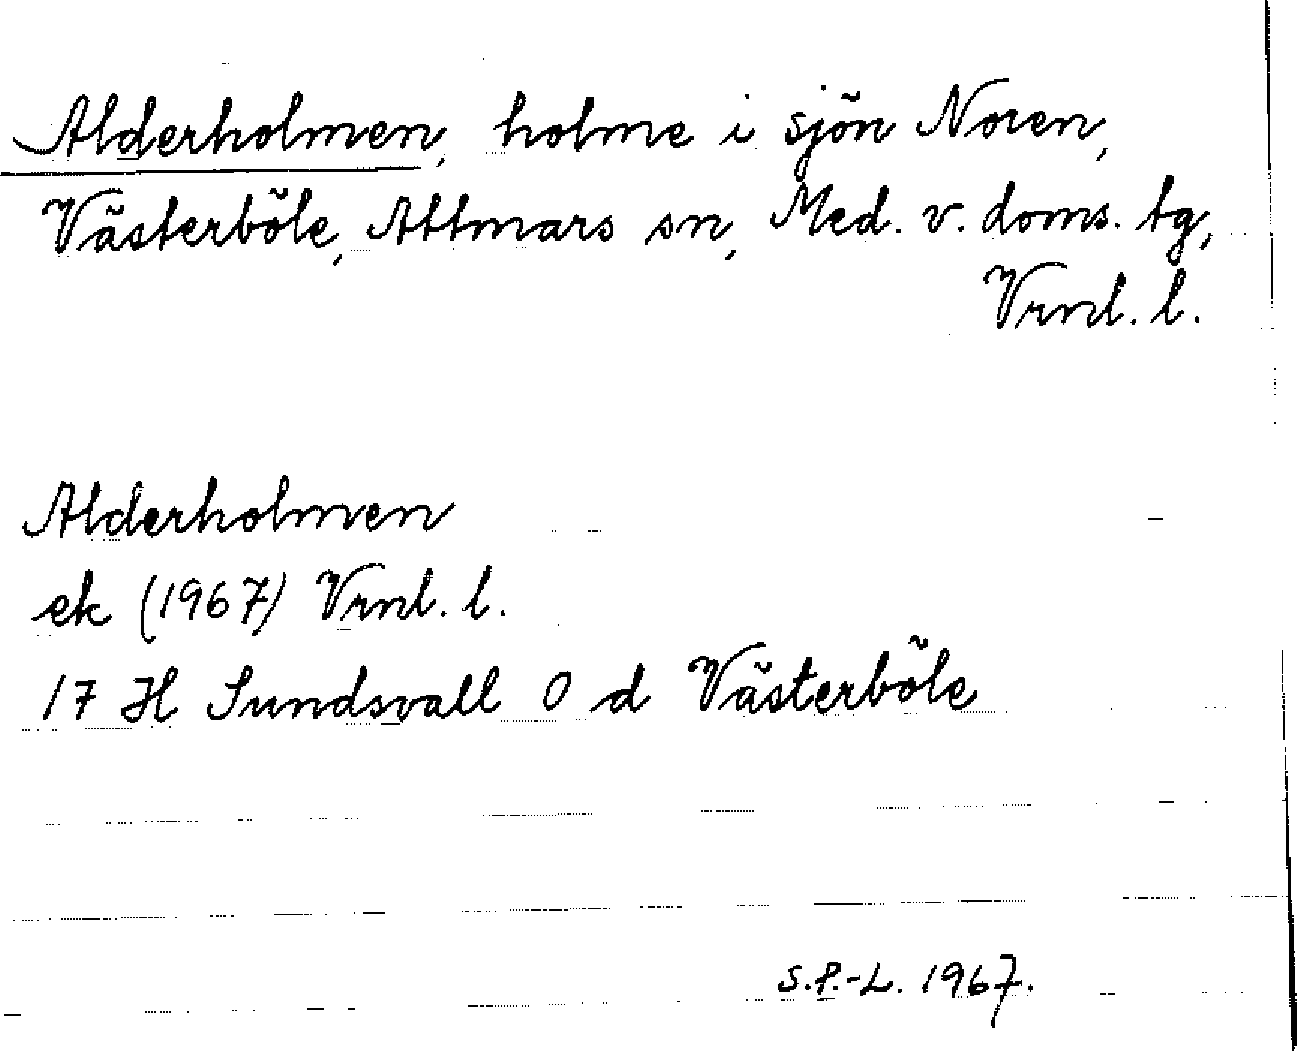 Alderholmen, holme i sjön Noren,
Västerböle, Attmars sn, Med. v. doms. tg,
Vrnl. l.
Alderholmen
ek (1967) Vrnl. l.
17 H Sundsvall 0 d Västerböle
S.P.-L. 1967.